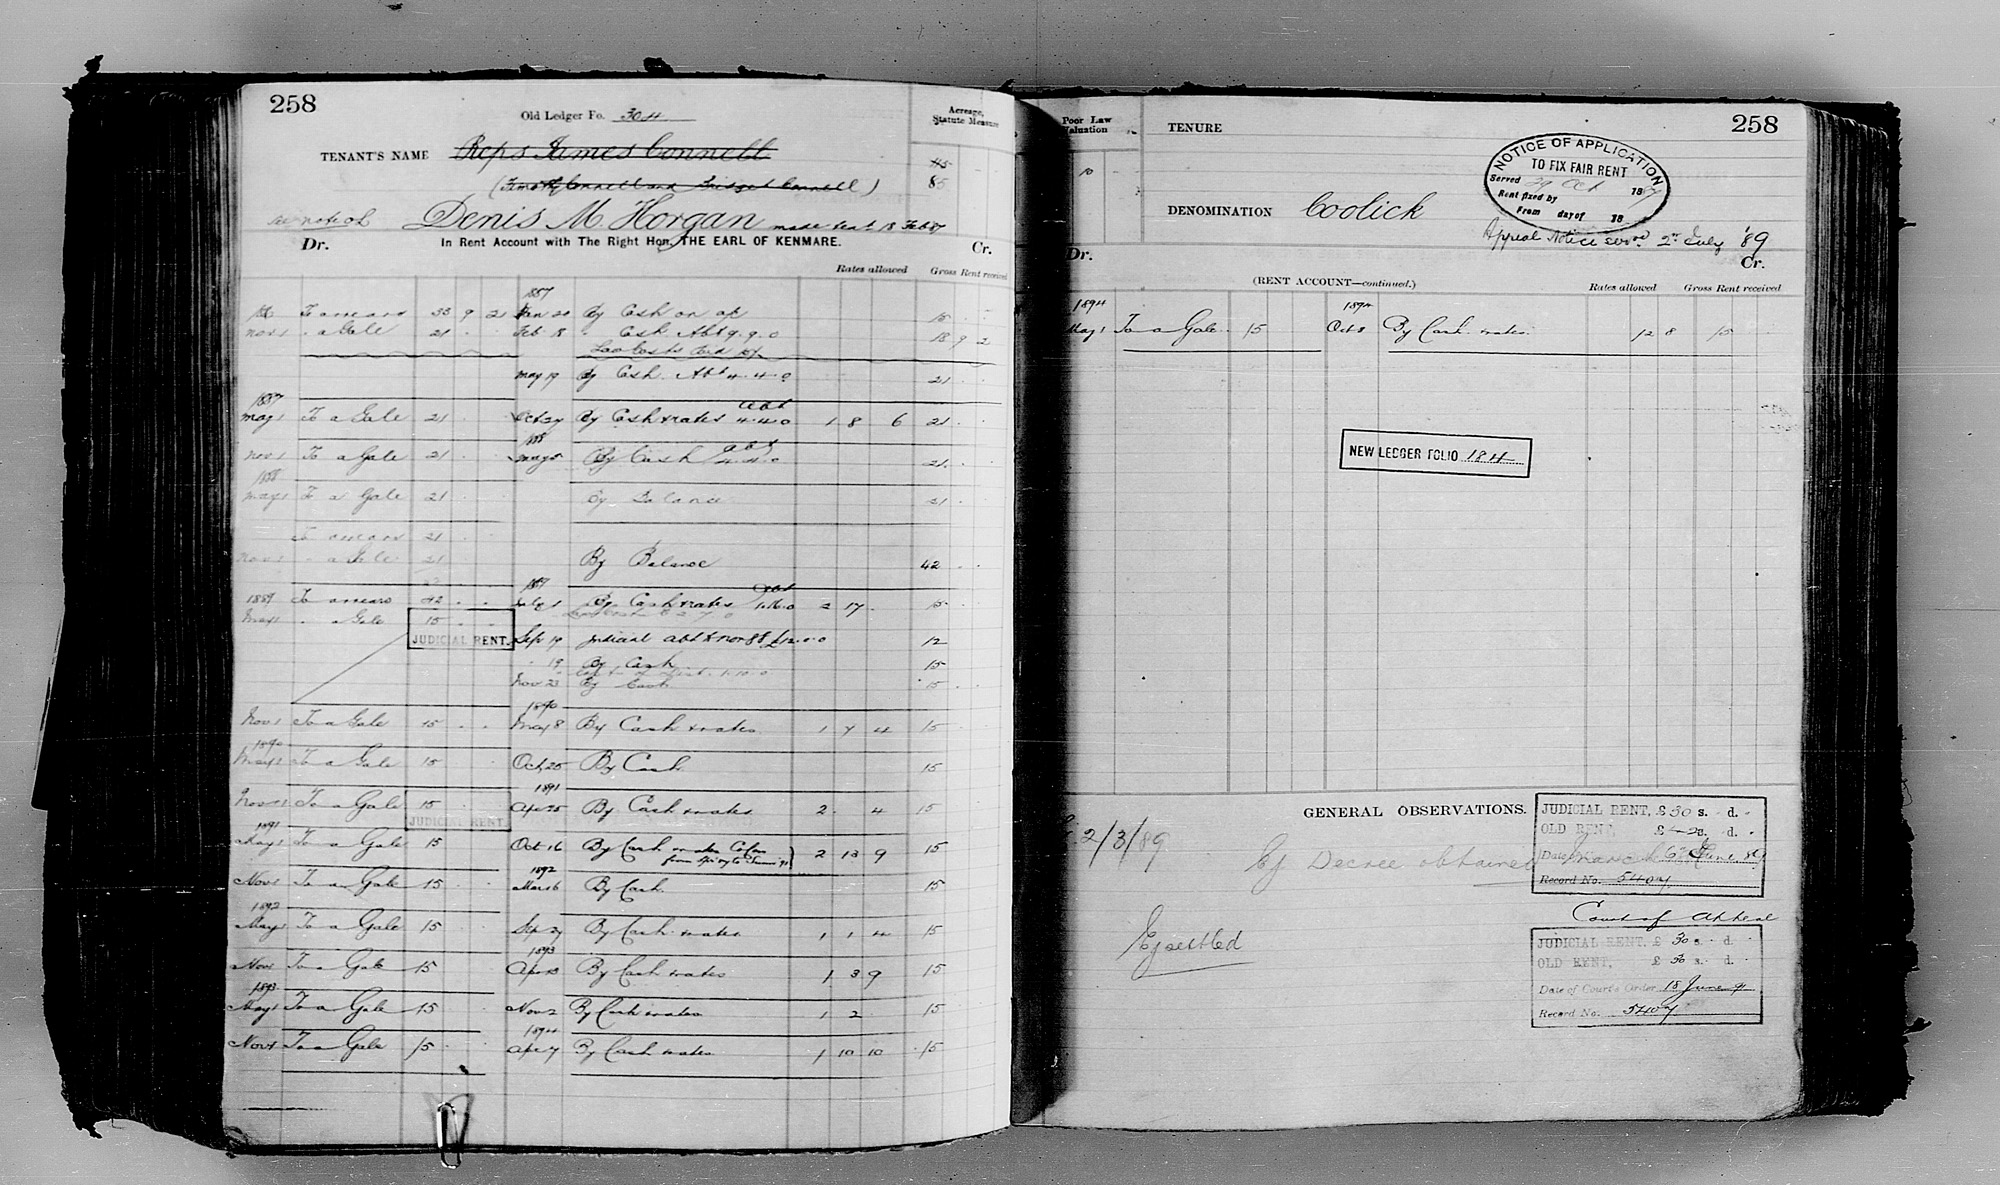 258
Old Ledger Fo. 304
Acreage, Statute Measure
TENANT'S NAME Reps James Connell
45
(Timothy Connell and Bridget Connell)
85
see note ol
Denis M. Horgan made tent 18 Feb 87
Dr. In Rent Account with The Right Hon. THE EARL OF KENMARE. Cr.
Rates allowed Gross Rent received
1887
To arrears 33 9 2 Jan 20 By Cash on a/c 15
Nov 1 " a Gale 21 Feb 18 " Cash Abt 9.9.0 18 9 2
May 19 By Cash Abt 4.4.0 21
1887 abt
May 1 To a Gale 21 Oct 27 By Cash & rates 4.4.0 1 8 6 21
1888 abt
Nov 1 To a Gale 21 May 5 By Cash 4.4.0 21
1888
May 1 To a Gale 21 By Balance 21
To arrears 21
Nov 1 " a Gale 21 By Balance 42
abt
1889 To arrears 42 July 1 By Cash & rates 2 17 15
May 1 " a Gale 15
JUDICIAL RENT. Sep 19 Judicial abt to Nov 88 £12.0.0 12
" 19 By Cash 15
Nov 23 By Cash 15
1890
Nov 1 To a Gale 15 May 8 By Cash & rates 1 7 4 15
1890
May 1 To a Gale 15 Oct 25 By Cash 15
1891
Nov 1 To a Gale 15 Apr 25 By Cash & rates 2 4 15
JUDICIAL RENT
1891
May 1 To a Gale 15 Oct 16 By Cash rates 2 13 9 15
1892
Nov 1 To a Gale 15 Mar 16 By Cash 15
1892
May 1 To a Gale 15 Sep 27 By Cash rates 1 1 4 15
1893
Nov 1 To a Gale 15 Apr 13 By Cash rates 1 3 9 15
1893
May 1 To a Gale 15 Nov 2 By Cash rates 1 2 15
1894
Nov 1 To a Gale 15 Apr 7 By Cash rates 1 10 10 15
Poor Law Valuation
TENURE
258
10
NOTICE OF APPLICATION
TO FIX FAIR RENT
Served 29 Oct 1887
Rent fixed by
From day of 18
DENOMINATION Coolick
Appeal Notice served 2nd July '89
Dr. Cr.
(RENT ACCOUNT—continued.)
Rates allowed Gross Rent received
1894 1894
May 1 To a Gale 15 Oct 8 By Cash rates 12 8 15
NEW LEDGER FOLIO 184
GENERAL OBSERVATIONS.
2/3/89 Ej Decree obtained
Ej settled
JUDICIAL RENT, £30 s. d.
OLD RENT, £42 s. d.
Record No. 5407
Court of Appeal
JUDICIAL RENT, £ 30 s. d.
OLD RENT, £ 30 s. d.
Date of Court's Order 18 June 91
Record No. 5407